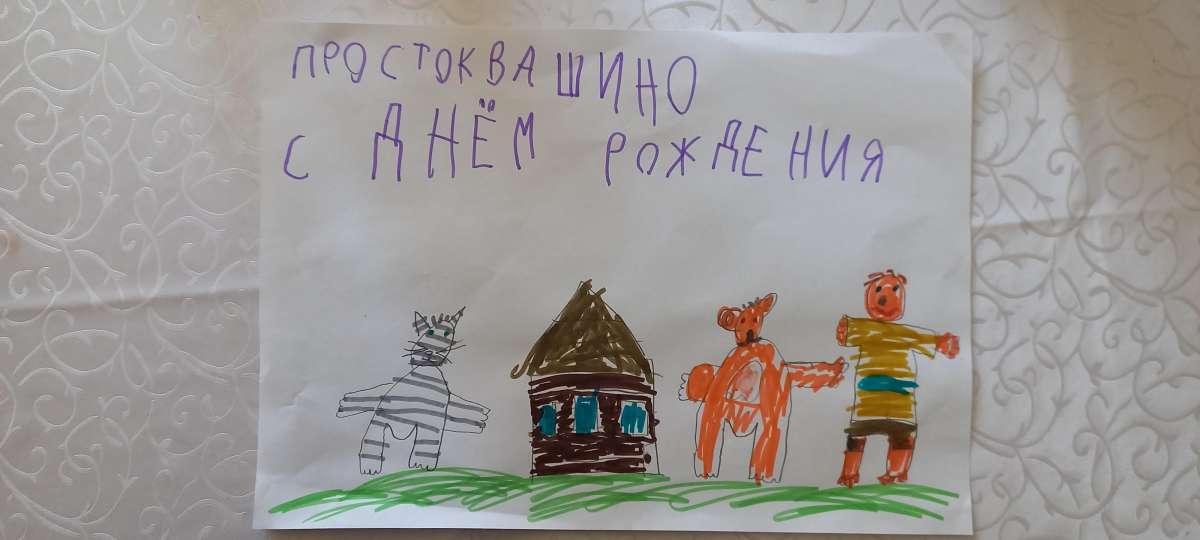 ПРОСТОКВАШИНО
С ДНЁМ РОЖДЕНИЯ